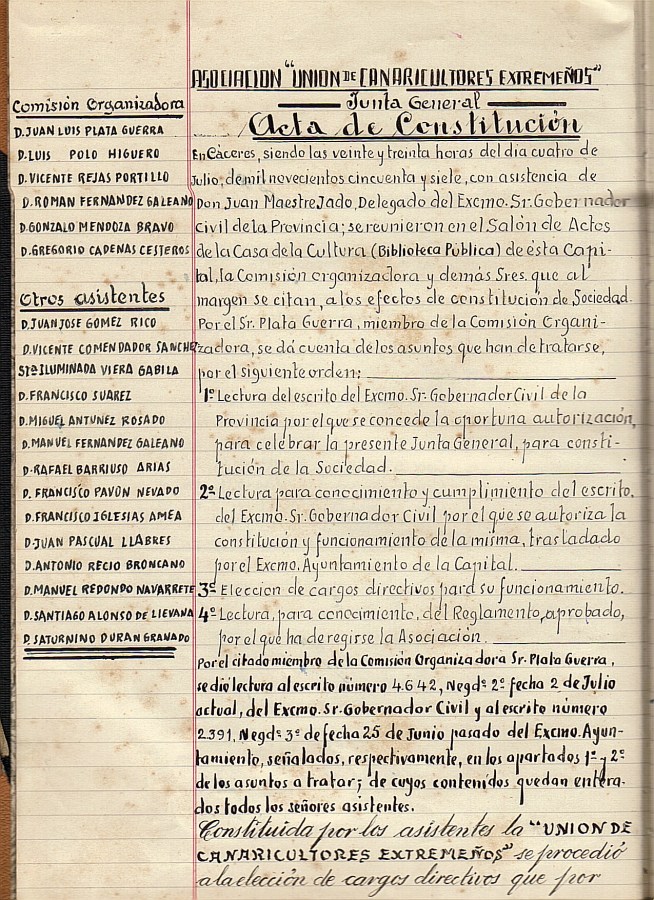 ASOCIACION "UNION DE CANARICULTORES EXTREMEÑOS"
Junta General
Acta de Constitución
Comisión Organizadora
D. JUAN LUIS PLATA GUERRA
D. LUIS POLO HIGUERO
D. VICENTE REJAS PORTILLO
D. ROMAN FERNANDEZ GALEANO
D. GONZALO MENDOZA BRAVO
D. GREGORIO CADENAS CESTEROS
Otros asistentes
D. JUAN JOSE GOMEZ RICO
D. VICENTE COMENDADOR SANCHEZ
Stª ILUMINADA VIERA GABILA
D. FRANCISCO SUAREZ
D. MIGUEL ANTUNEZ ROSADO
D. MANUEL FERNANDEZ GALEANO
D. RAFAEL BARRIUSO ARIAS
D. FRANCISCO PAVON NEVADO
D. FRANCISCO IGLESIAS AMEA
D. JUAN PASCUAL LLABRES
D. ANTONIO RECIO BRONCANO
D. MANUEL REDONDO NAVARRETE
D. SANTIAGO ALONSO DE LIEVANA
D. SATURNINO DURAN GRANADO
En Cáceres, siendo las veinte y treinta horas del dia cuatro de
Julio, de mil novecientos cincuenta y siete, con asistencia de
Don Juan Maestre Jado, Delegado del Excmo. Sr. Gobernador
Civil de la Provincia; se reunieron en el Salón de Actos
de la Casa de la Cultura (Biblioteca Pública) de ésta Capi-
tal, la Comisión organizadora y demás Sres. que al
margen se citan, a los efectos de constitución de Sociedad.
Por el Sr. Plata Guerra, miembro de la Comisión Organi-
zadora, se dá cuenta de los asuntos que han de tratarse,
por el siguiente orden:
1º Lectura del escrito del Excmo. Sr. Gobernador Civil de la
Provincia por el que se concede la oportuna autorización,
para celebrar la presente Junta General, para consti-
tución de la Sociedad.
2º Lectura para conocimiento y cumplimiento del escrito,
del Excmo. Sr. Gobernador Civil por el que se autoriza la
constitución y funcionamiento de la misma, trasladado
por el Excmo. Ayuntamiento de la Capital.
3º Eleccion de cargos directivos para su funcionamiento.
4º Lectura, para conocimiento, del Reglamento, aprobado,
por el que ha de regirse la Asociación.
Por el citado miembro de la Comisión Organizadora Sr. Plata Guerra,
se dió lectura al escrito número 4.642, Negdº 2º fecha 2 de Julio
actual, del Excmo. Sr. Gobernador Civil y al escrito número
2.391, Negdº 3º de fecha 25 de Junio pasado del Excmo. Ayun-
tamiento, señalados, respectivamente, en los apartados 1º y 2º
de los asuntos a tratar; de cuyos contenidos quedan entera-
dos todos los señores asistentes.
Constituida por los asistentes la "UNION DE
CANARICULTORES EXTREMEÑOS" se procedió
a la elección de cargos directivos que por